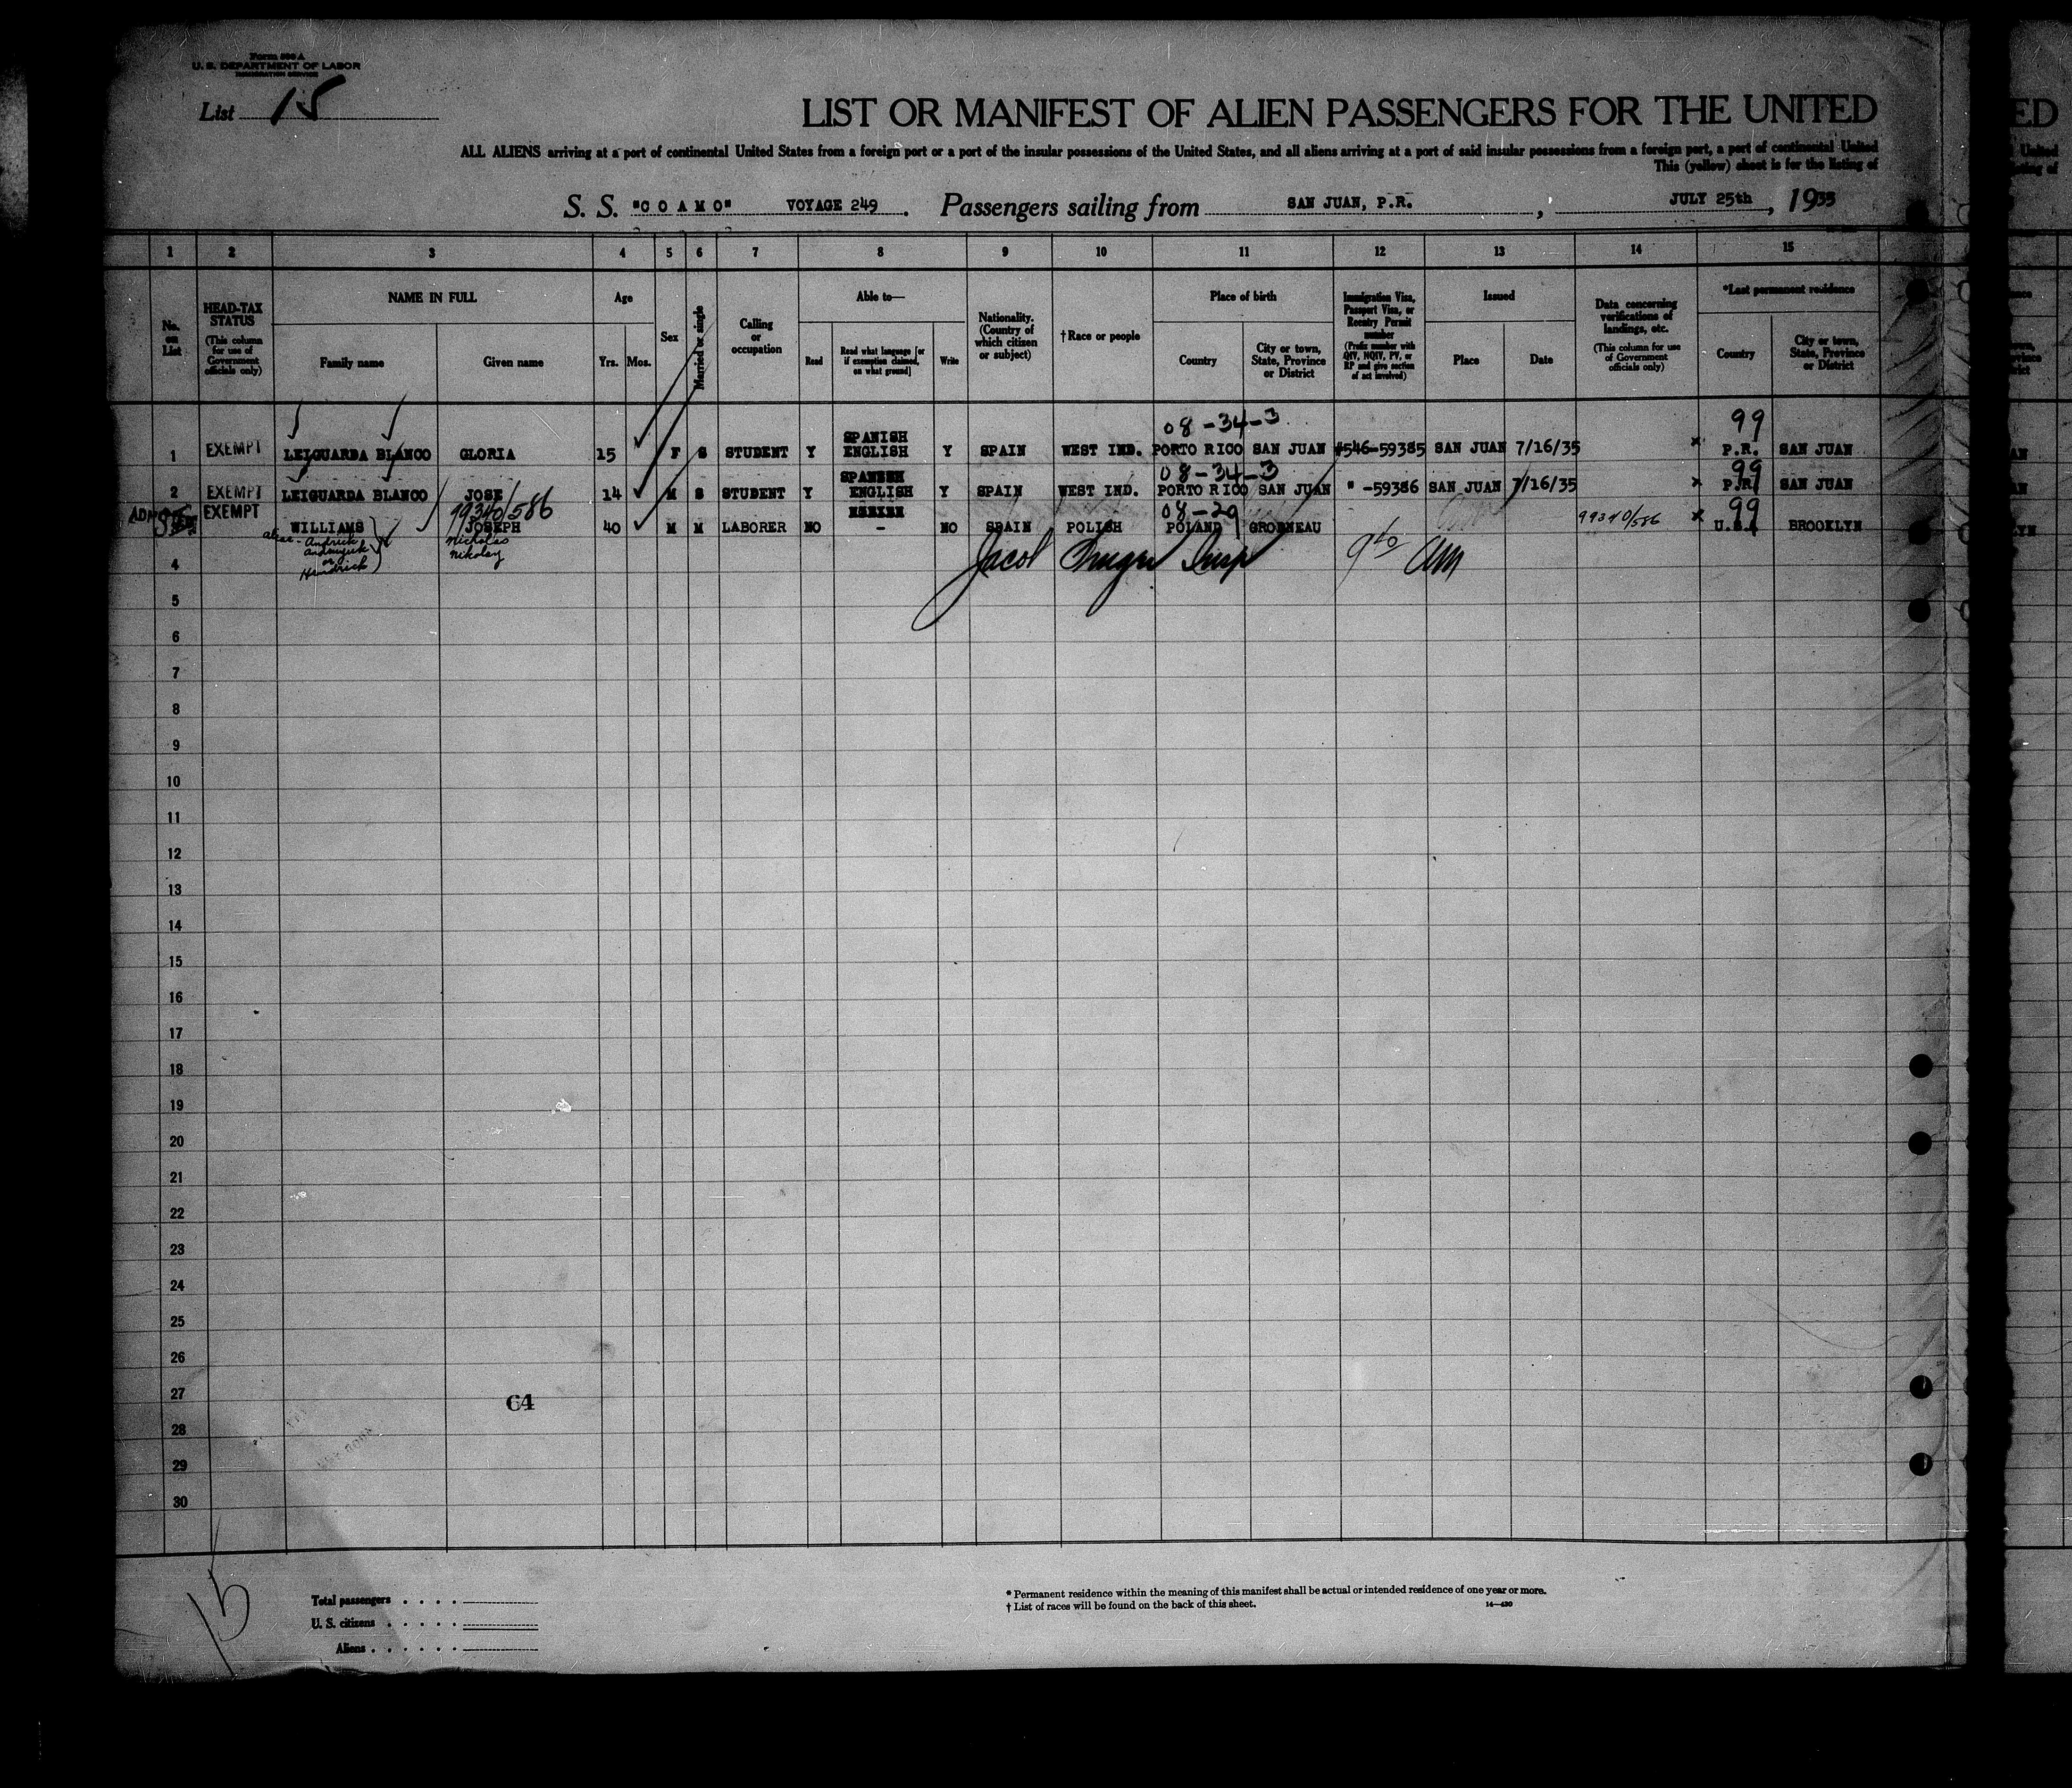 Form 500 A
U. S. DEPARTMENT OF LABOR
IMMIGRATION SERVICE
List 15
LIST OR MANIFEST OF ALIEN PASSENGERS FOR THE UNITED
ALL ALIENS arriving at a port of continental United States from a foreign port or a port of the insular possessions of the United States, and all aliens arriving at a port of said insular possessions from a foreign port, a port of continental United
This (yellow) sheet is for the listing of
S. S. "COAMO" VOYAGE 249. Passengers sailing from SAN JUAN, P.R., JULY 25th, 1935
1 2 3 4 5 6 7 8 9 10 11 12 13 14 15
No. on List
HEAD-TAX STATUS
(This column for use of Government officials only)
NAME IN FULL
Family name Given name
Age
Yrs. Mos.
Sex
Married or single
Calling or occupation
Able to—
Read
Read what language [or if exemption claimed, on what ground]
Write
Nationality. (Country of which citizen or subject)
†Race or people
Place of birth
Country
City or town, State, Province or District
Immigration Visa, Passport Visa, or Reentry Permit number
(Prefix number with QIV, NQIV, PV, or RP and give section of act involved)
Issued
Place Date
Data concerning verifications of landings, etc.
(This column for use of Government officials only)
*Last permanent residence
Country
City or town, State, Province or District
08-34-3 99
SPANISH
1 EXEMPT LEIGUARDA BLANCO GLORIA 15 F S STUDENT Y ENGLISH Y SPAIN WEST IND. PORTO RICO SAN JUAN #546-59385 SAN JUAN 7/16/35 x P.R. SAN JUAN
SPANISH 08-34-3 99
2 EXEMPT LEIGUARDA BLANCO JOSE 14 M S STUDENT Y ENGLISH Y SPAIN WEST IND. PORTO RICO SAN JUAN " -59386 SAN JUAN 7/16/35 x P.R. SAN JUAN
EXEMPT 99340/586 08-29 99
WILLIAMS JOSEPH 40 M M LABORER NO - NO SPAIN POLISH POLAND GRODNEAU 99340/586 x U.S.A BROOKLYN
alias - Andrick Nicholas
or Nikolay
Hendrick
4 Jacol Insp 9 40 AM
5
6
7
8
9
10
11
12
13
14
15
16
17
18
19
20
21
22
23
24
25
26
27
64
28
29
30
15
Total passengers
U. S. citizens
Aliens
* Permanent residence within the meaning of this manifest shall be actual or intended residence of one year or more.
† List of races will be found on the back of this sheet.
14—430